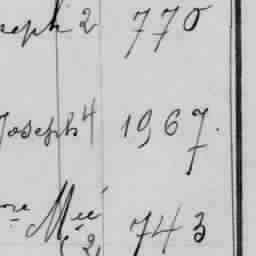 seph 2 770
Joseph 4 1967.
Mée 743
(2,